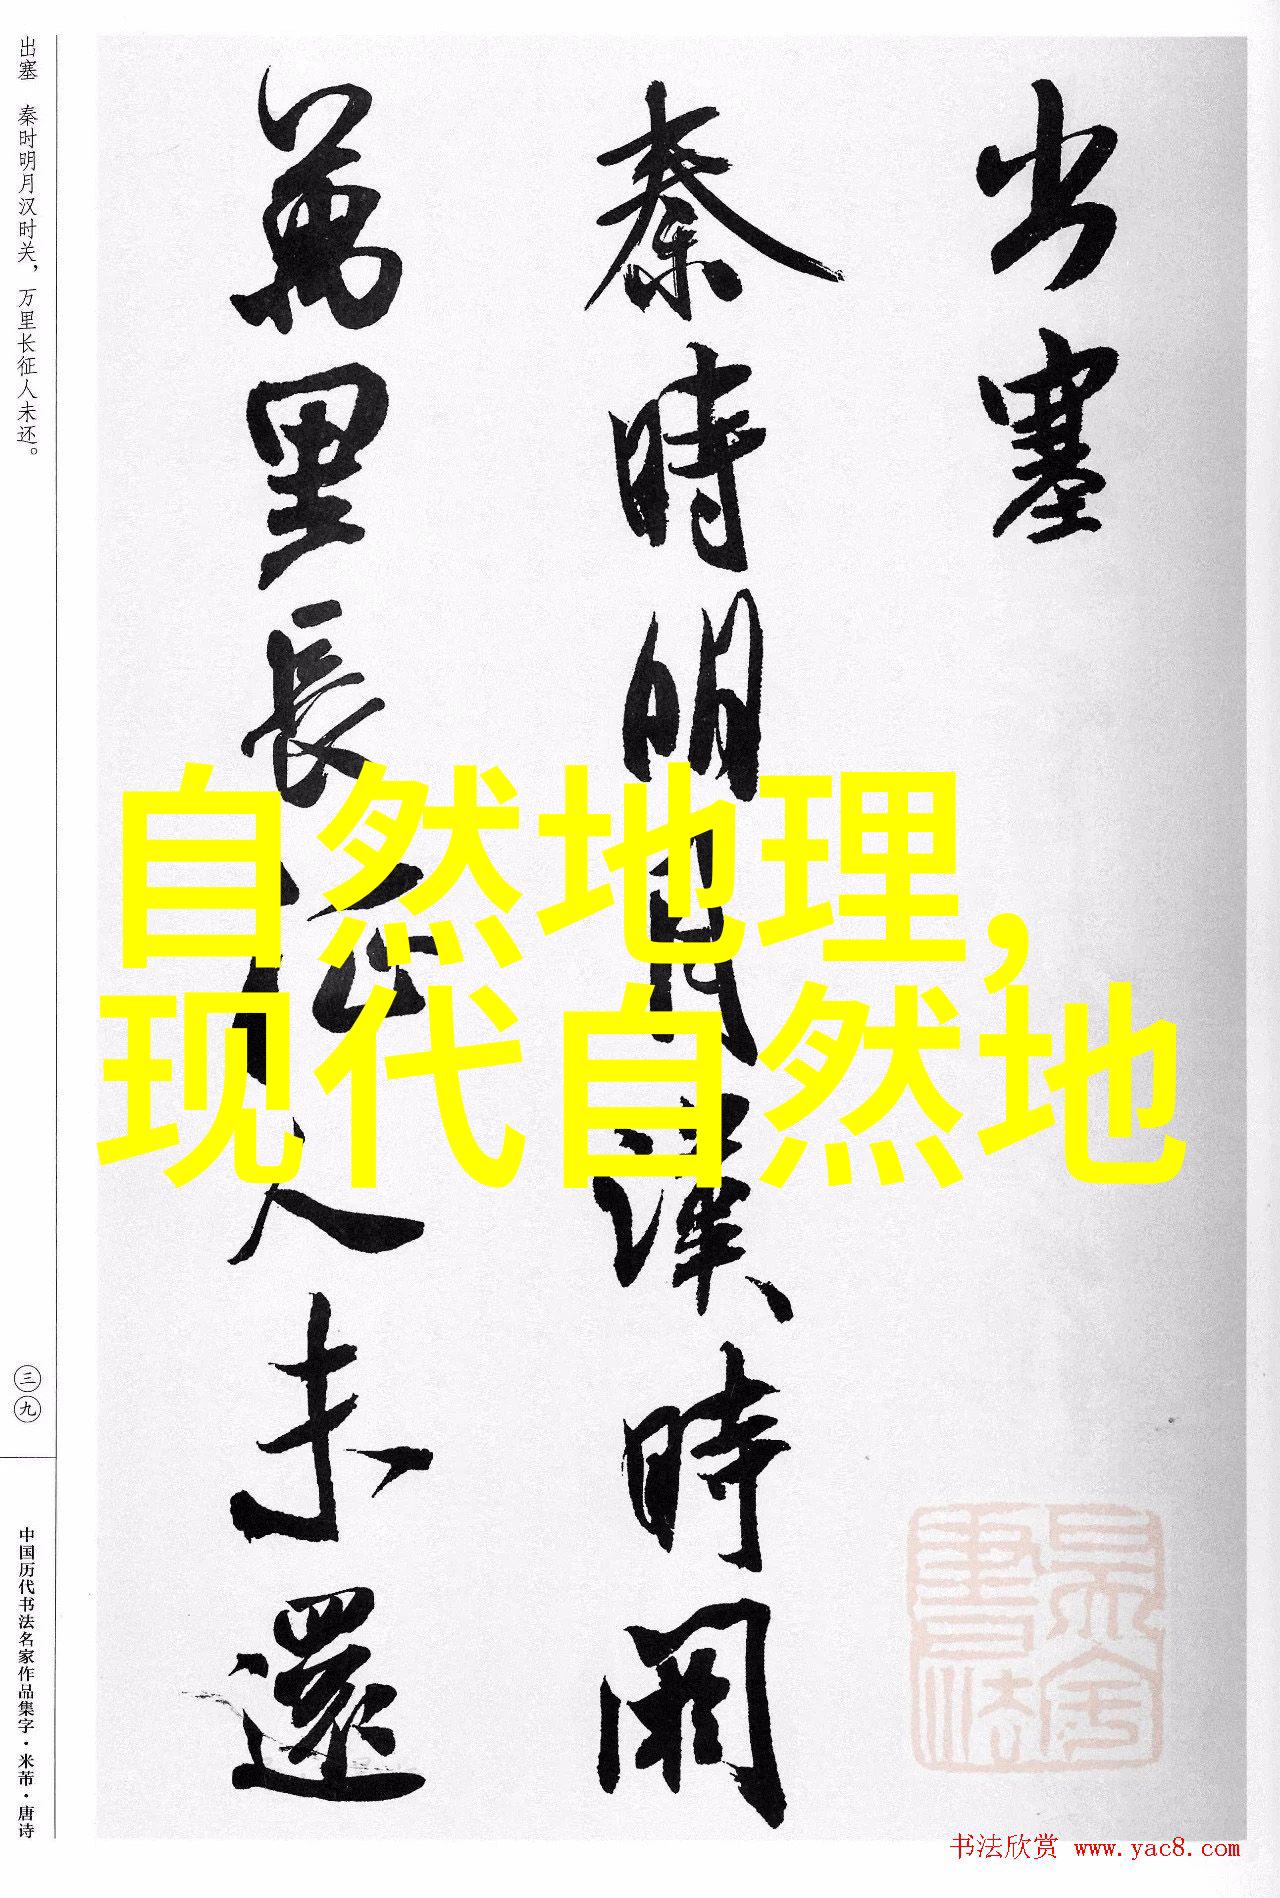 出塞
秦時明月漢時関
萬里長征人未還
出塞 秦时明月汉时关，万里长征人未还。
三九
中国历代书法名家作品集字·米芾·唐诗
自然地理，
现代自然地
书法欣赏 www.yac8.com